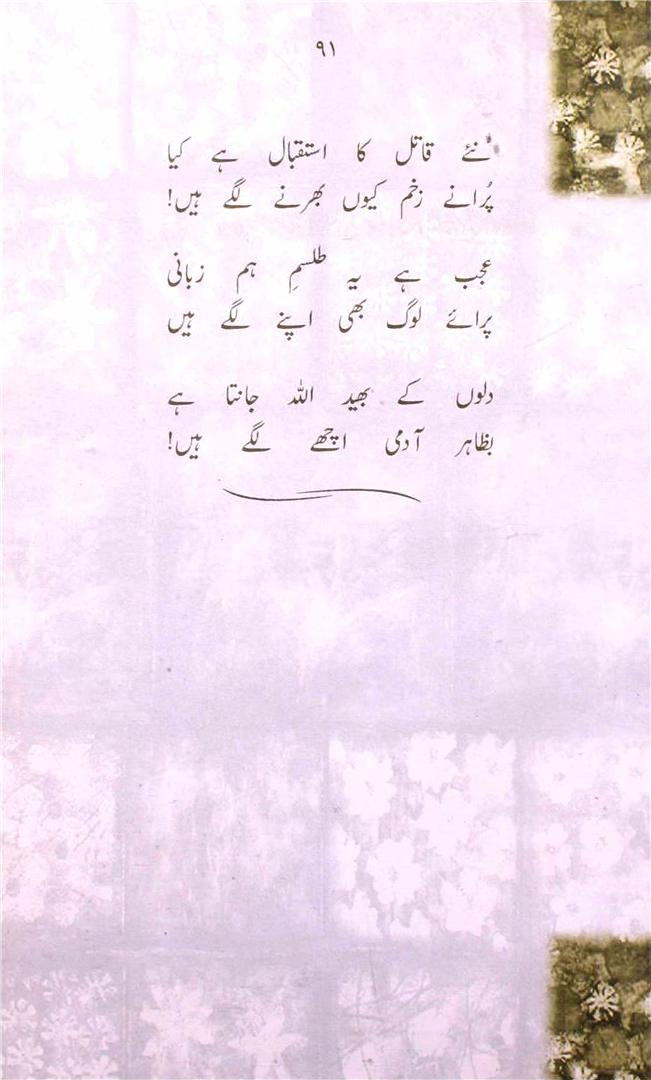 ۹۱
نئے قاتل کا استقبال ہے کیا
پُرانے زخم کیوں بھرنے لگے ہیں!
عجب ہے یہ طلسمِ ہم زبانی
پرائے لوگ بھی اپنے لگے ہیں
دلوں کے بھید اللہ جانتا ہے
بظاہر آدمی اچھے لگے ہیں!